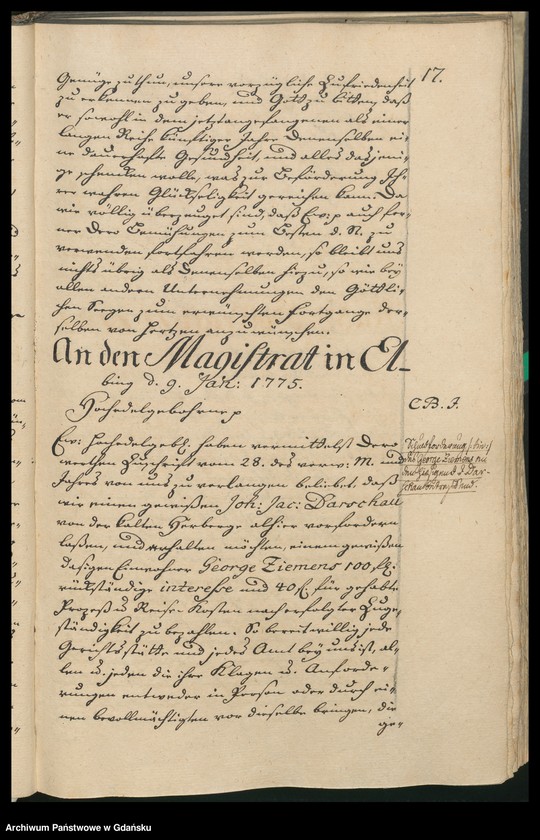 17.
Genüge zu thun, unsere vorzügliche Zufriedenheit
zu erkennen zu geben, und Gott zu bitten, daß
er sowohl in dem jetzt angefangenen als einer
langen Reihe künftiger Jahre Denenselben ei-
ne dauerhafte Gesundheit, und alles dasjeni-
ge schenken wolle, was zur Beförderung Ih-
rer wahren Glückseligkeit gereichen kann. Da
wir völlig überzeuget sind, daß Ew: p auch fer-
ner Dero Bemühungen zum Besten d. St. zu
verwenden fortfahren werden, so bleibt uns
nichts übrig als Denenselben hiezu, so wie bey
allen andern Unternehmungen den Göttli-
chen Seegen zum erwünschten Fortgange der-
selben von Hertzen anzuwünschen.
An den Magistrat in El-
bing d. 9. Jan: 1775.
Hochedelgebohrne p
C. B. I.
Ew: Hochedelgeb. haben vermittelst Dero
werthen Zuschrift vom 28. des verw: M. und
Jahres von uns zu verlangen beliebet, daß
wir einen gewißen Joh: Jac: Darschau
von der kalten Herberge alhier vorfordern
laßen, und anhalten möchten, einem gewißen
dasigen Einwohner George Ziemens 100 fl.
rückständige interesse und 40 f. für gehabte
Prozeß u. Reise Kosten nach erfolgter Zuge-
ständigkeit zu bezahlen. So bereitwillig jede
Gerichtsstätte und jedes Amt bey uns ist, al-
len u. jeden die ihre Klagen u. Anforde-
rungen entweder in Person oder durch ei-
nen bevollmächtigten vor dieselbe bringen, die
ge-
Archiwum Państwowe w Gdańsku